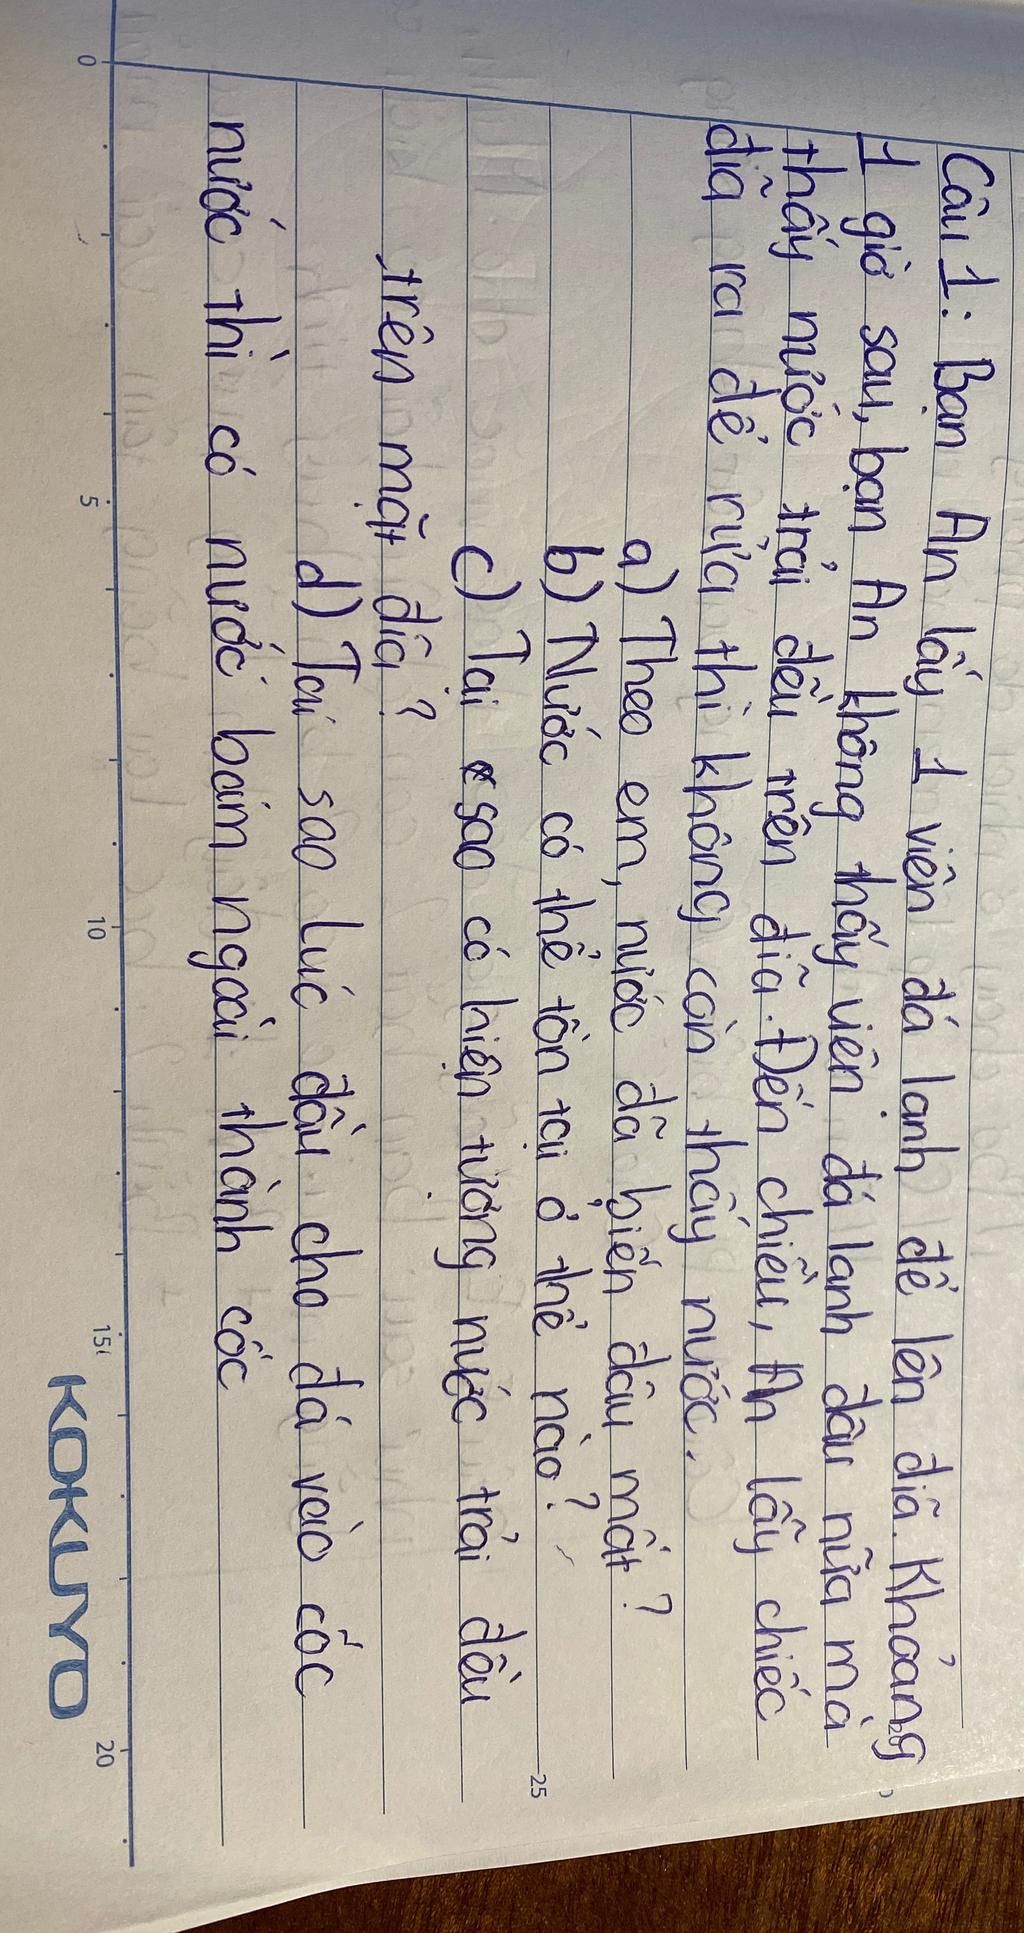 Câu 1: Bạn An lấy 1 viên đá lạnh để lên đĩa. Khoảng
1 giờ sau, bạn An không thấy viên đá lạnh đâu nữa mà
thấy nước trải đều trên đĩa. Đến chiều, An lấy chiếc
đĩa ra để rửa thì không còn thấy nước.
a) Theo em, nước đã biến đâu mất?
b) Nước có thể tồn tại ở thể nào?
c) Tại sao có hiện tượng nước trải đều
trên mặt đĩa?
d) Tại sao lúc đầu cho đá vào cốc
nước thì có nước bám ngoài thành cốc
0
5
10
15
20
25
KOKUYO